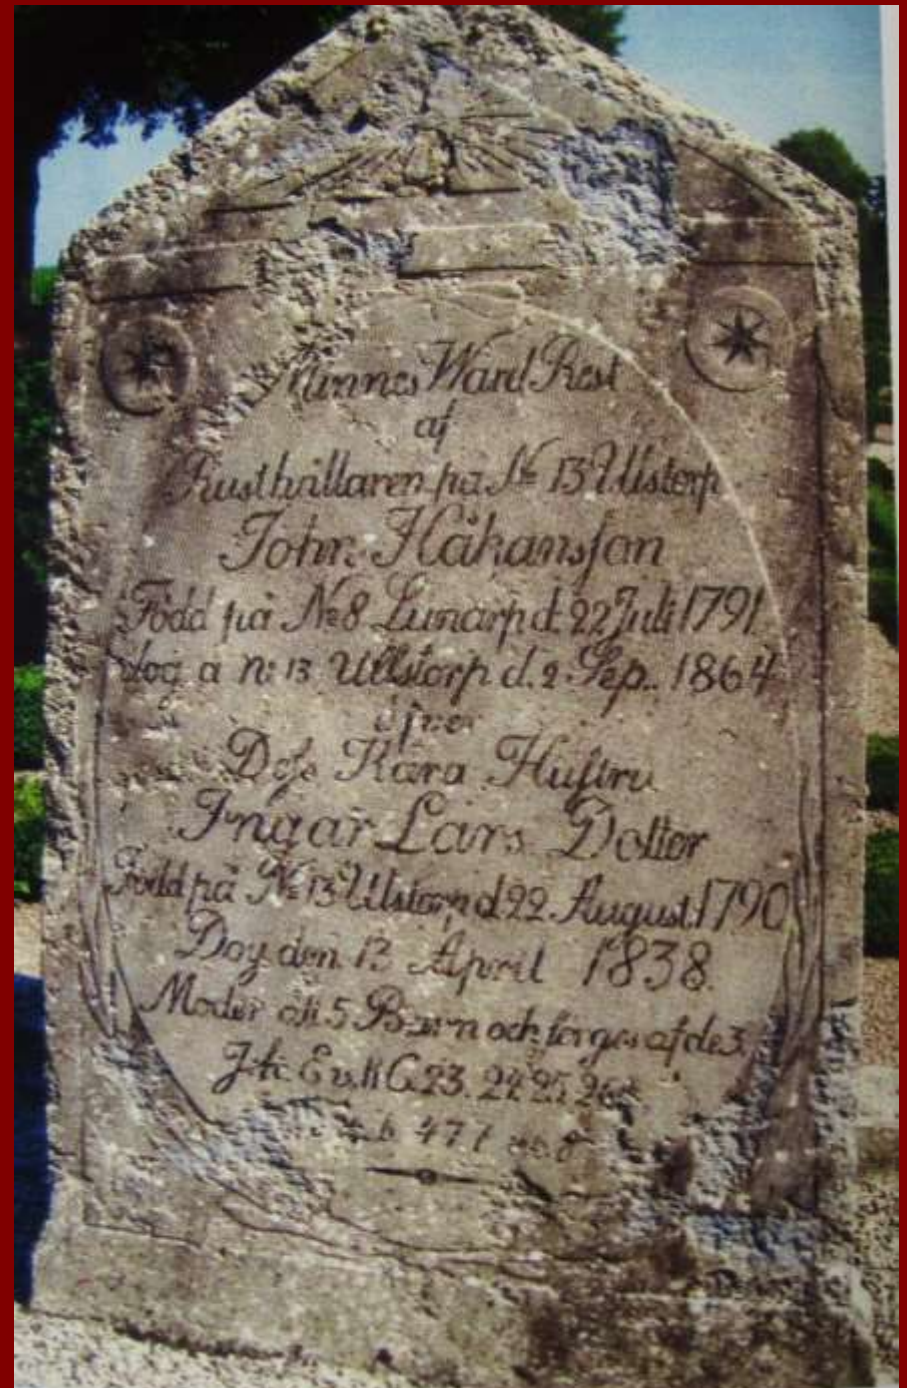 Minnes Ward Rest
af
Rusthållaren på No 13 Ulstorp
John Håkansson
Född på No 8 Lunarp d. 22 Juli 1791
dog å n: 13 Ullstorp d. 2 Sep. 1864
öfver
Dess Kära Hustru
Ingar Lars Dotter
Född på No 13 Ulstorp d 22 August 1790
Dog den 13 April 1838.
Moder till 5 Barn och sörges af de 3
23. 24 25 26
47